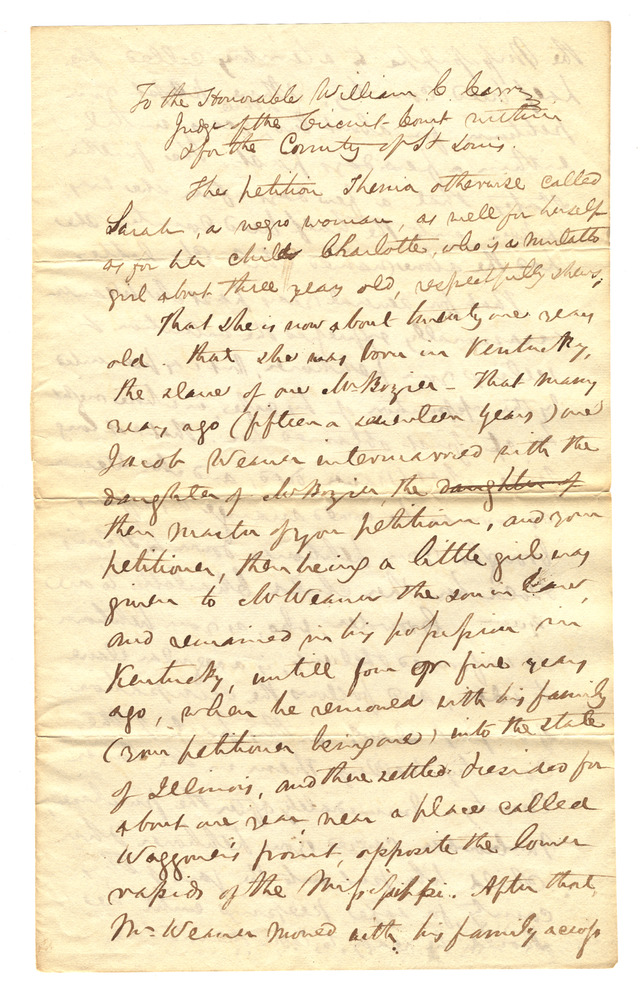 To the Honorable William C. Carr
Judge of the Circuit Court within
& for the County of St Louis.
The petition Thenia otherwise called
Sarah, a negro woman, as well for herself
as for her child Charlotte, who is a mulatto
girl about three year old, respectfully shews;
That she is now about twenty one years
old. that she was born in Kentucky,
the slave of one Mr Bozier – That many
years ago (fifteen or seventeen years) one
Jacob Weaver intermarried with the
daughter of Mr Bozier, the daughter of
then master of your petitioner, and your
petitioner, then being a little girl was
given to Mr Weaver the son in law,
and remained in his possession in
Kentucky, untill four or five years
ago, when he removed with his family
(your petitioner being one) into the state
of Illinois, and there settled & resided for
about one year, near a place called
Waggoner's point, opposite the lower
rapids of the Missisippi. After that,
Mr Weaver moved with his family across